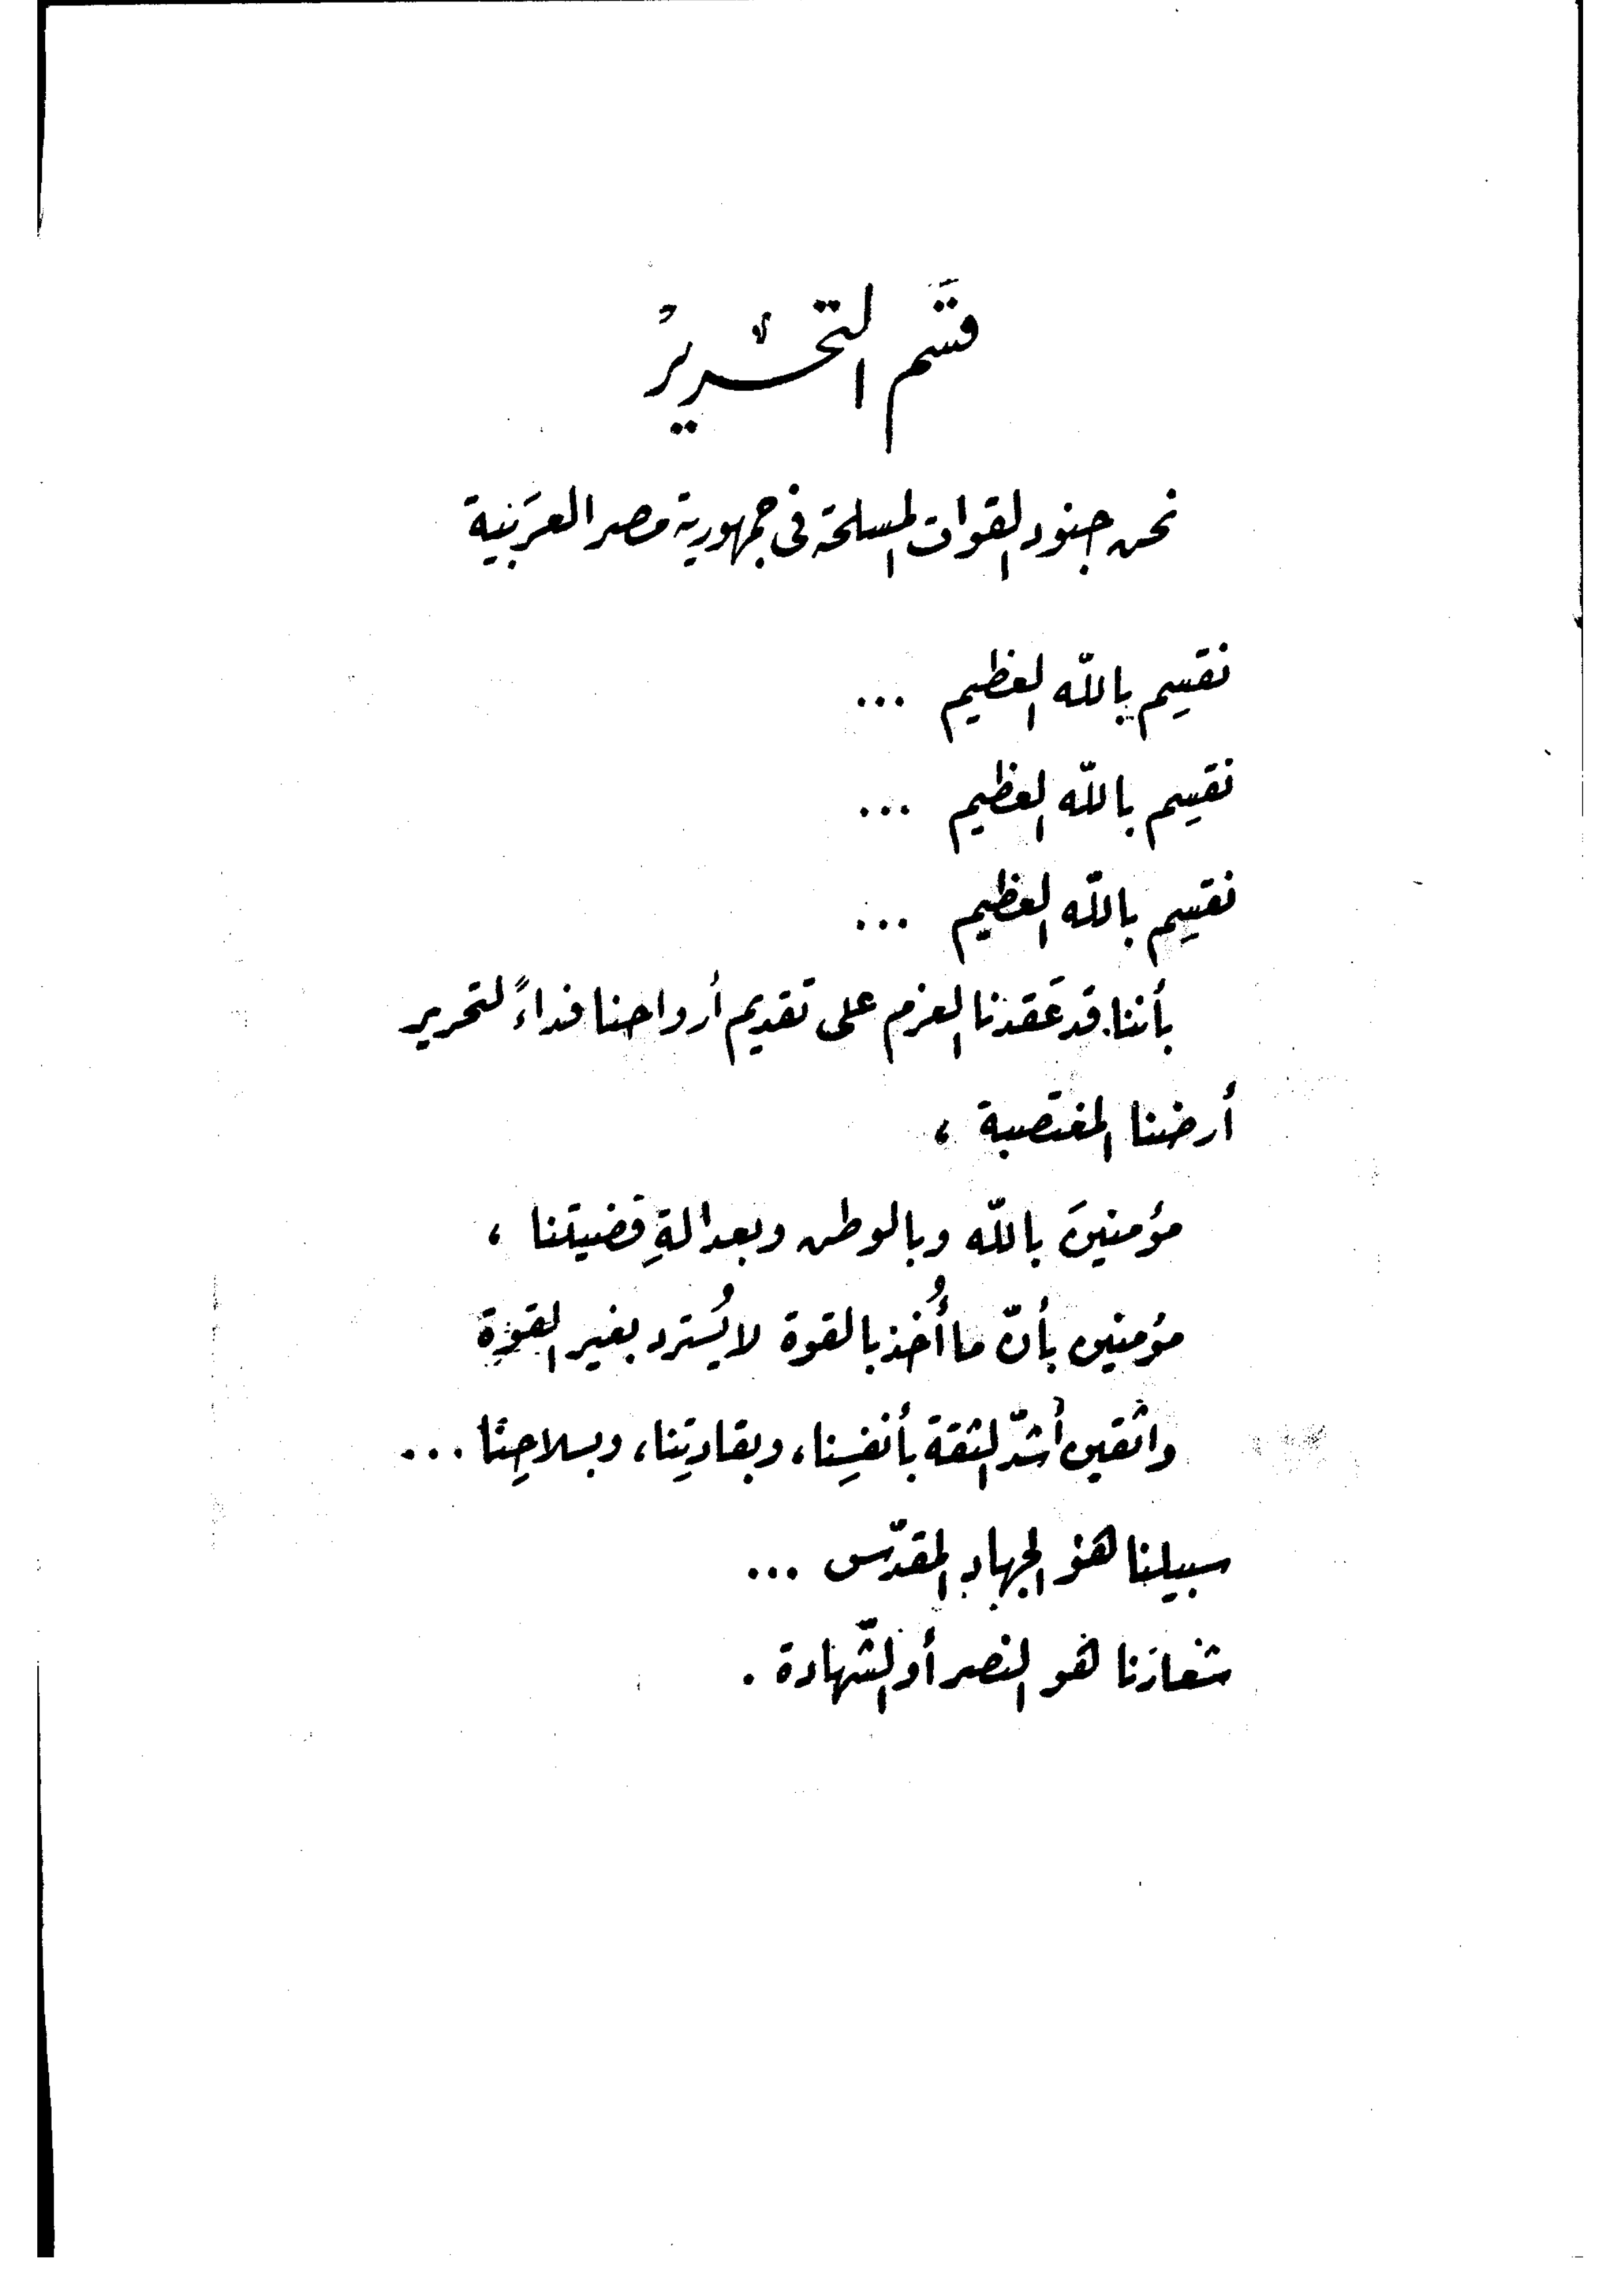 قَسَم التحرير
نحن جنود القوات المسلحة فى جمهورية مصر العَربية
نقسِم بالله العظيم ...
نقسِم بالله العظيم ...
نقسِم بالله العظيم ...
بأننا قد عَقدنا العزم على تقديم أرواحنا فداءً لتحرير
أرضنا المغتصبة ،
مؤمنينَ باللّه وبالوطن وبعدالةِ قضيتنا ،
مؤمنين بأنّ ما أُخذ بالقوة لا يُسترد بغير القوةِ
واثقين أشدّ الثقة بأنفسِنا، وبقادتِنا، وبسلاحِنا ...
سبيلنا هو الجهاد المقدّس ...
شعارنا هو النصر أو الشّهادة .